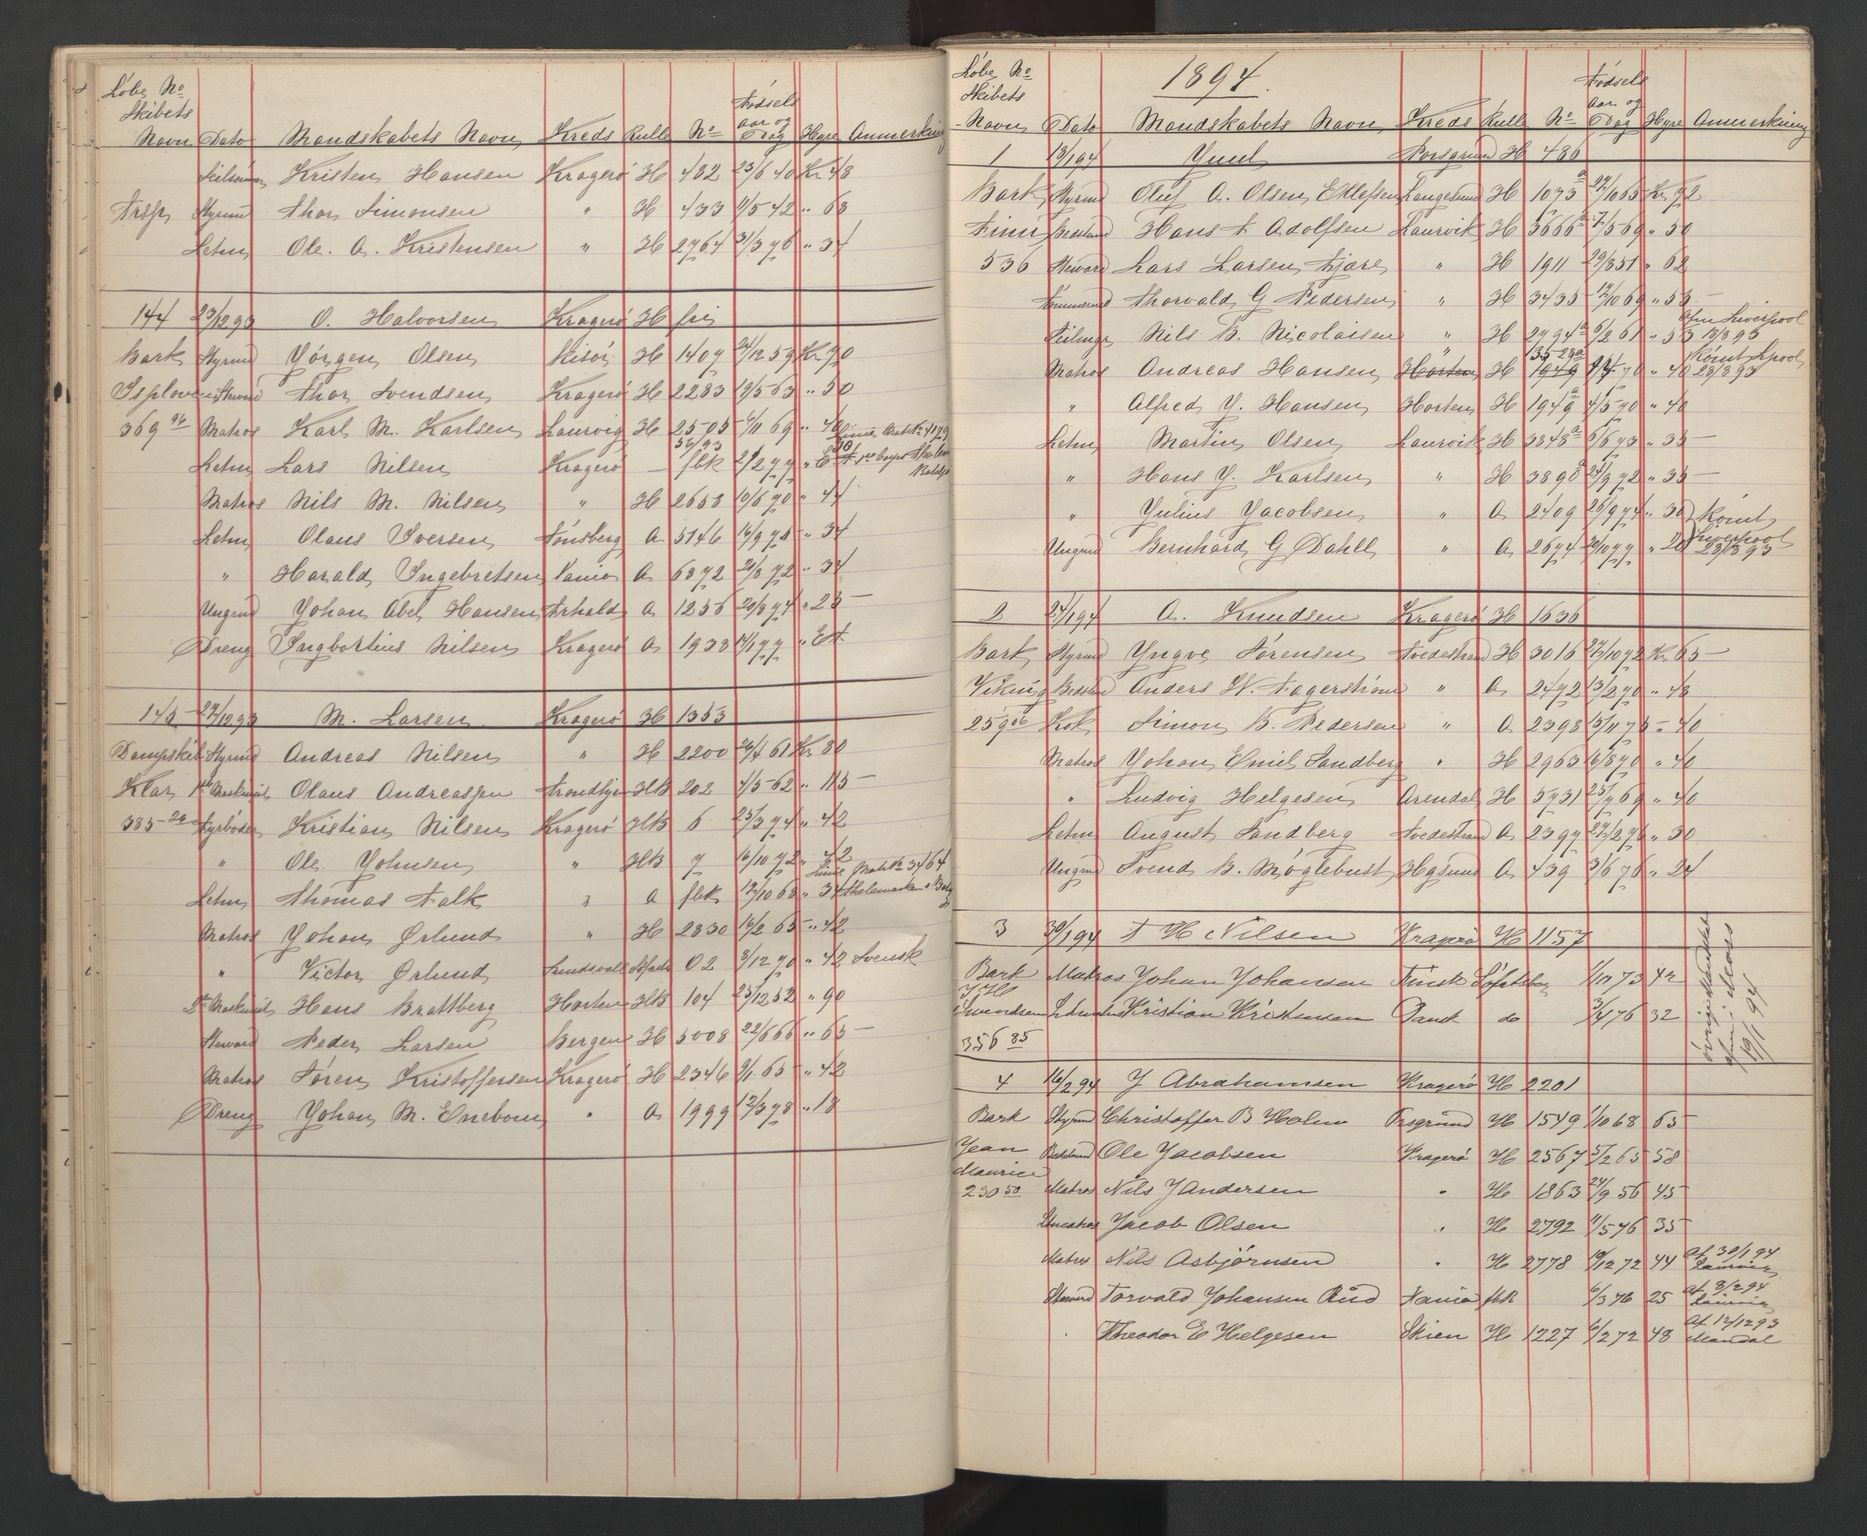 Løbe No
Skibets
Navn Dato Mandskabets Navn Kreds Rulle No Fødsels aar og Dag Hyre Anmerkning
Kristen Hansen Kragerø H 432 23/6 40 Kr 48
Styrmd Thor Simonsen " H 433 1/5 42 " 68
Letm Ole. A. Kristensen " H 2764 31/3 76 " 34
144 23/12 93 O. Halvorsen Kragerø H fri
Bark Styrmd Jørgen Olsen Risør H 1407 24/12 59 Kr 70
Isploven Steward Thor Svendsen Kragerø H 2283 19/5 63 " 50
369 96 Matros Karl M. Karlsen Laurvig H 2505 6/11 69 " 40
Letm Lars Nilsen Kragerø — 56/93 fbk 29/2 77
Matros Nils M. Nilsen " H 2658 10/6 70 " 44
Letm Olaus Iversen Tønsberg A 5146 16/9 75 " 34
" Harald Ingebretsen A 6872 21/8 72 " 34
Ungmd Johan Abel Hansen A 1256 20/8 74 " 25 —
Dreng Ingbortius Nilsen Kragerø A 1933 14/1 77 "
145 27/12 93 M. Larsen Kragerø H 1353
Dampskib Styrmd Andreas Nilsen " H 2200 26/4 61 Kr 80
Klar 1ste Maskinist Olaus Andreassen Trondhjem HB 202 4/5 62 " 115 —
385 Fyrbøder Kristian Nilsen Kragerø HB 6 25/3 74 " 42
" Ole Johnsen " HB 7 16/10 72 " 42
Letm Thomas Falk " A fbk 12/10 68 " 34
Matros Johan Ørlund " H 2830 16/2 65 " 42
" Victor Ørlund Sundsvall 02 8/12 70 " 42 Svensk
2den Maskinist Hans Brattberg Horten HB 104 25/12 52 " 90
Steward Peder Larsen Bergen H 5008 22/6 66 " 65 —
Matros Søren Kristoffersen Kragerø H 2346 9/1 65 " 42
Dreng Johan M. Enebom " A 1999 12/3 78 " 18
1894.
Løbe No
Skibets
Navn Dato Mandskabets Navn Kreds Rulle No Fødsels aar og Dag Hyre Anmerkning
1 13/1 94 Juul Porsgrund H 486
Bark Styrmd Oluf A. Olsen Ellefsen Langesund H 1073 a 27/10 65 Kr 72
Finn Bestmd Hans F Adolfsen Laurvik H 3666 a 7/5 69 " 50
536 Steward Lars Larsen Fjære " H 1911 29/8 51 " 62
Tømmermd Thorvald G Pedersen " H 3435 12/10 69 " 55 —
Nils B. Nicolaisen " H 2794 a 6/2 61 " 53
Matros Andreas Hansen Horten H 1949 70 " 40
" Alfred J. Hansen Horten H 1949 a 4/5 70 " 40
Letm Martin Olsen Laurvik H 3848 a 5/6 73 " 35 —
" Hans J. Karlsen " H 3898 a 24/9 72 " 35 —
" Julius Jacobsen " A 2409 26/9 74 " 30 Rømt
Ungmd Bernhard G Dahll " A 2674 20/10 77 " 20 Liverpool 23/3 93
2 27/1 94 A. Knudsen Kragerø H 1636
Bark Styrmd Yngve Sørensen Tvedestrand H 3016 27/10 72 Kr 65 —
Viking Bestmd Anders W. Fagerstrøm " A 2472 13/2 70 " 48
259 06 Kok Simon B. Pedersen " A 2398 15/11 75 " 40
Matros Johan Emil Sandberg " H 2963 6/8 70 " 40
" Ludvig Helgesen Arendal H 5731 25/7 69 " 40
Letm August Sandberg Tvedestrand A 2397 27/2 76 " 30
Ungmd Svend B. Møglebust A 439 3/6 76 " 24
3 30/1 94 F H Nilsen Kragerø H 1157
Bark Matros Johan Johansen Finsk 1/10 73 42
J H Letmatros Kristian Kristensen Dansk do 3/4 76 32
356 85
i Moss 19/1 94
4 16/2 94 J Abrahamsen Kragerø H 2201
Bark Styrmd Christoffer B Holm Prsgrund H 1549 1/10 68 65
Jean Bestmd Ole Jacobsen Kragerø H 2567 5/2 65 58
Maurice
230 50 Matros Nils J Andersen " H 1863 24/9 56 45
Letmatros Jacob Olsen " H 2792 11/5 76 35
Matros Nils Asbjørnsen " H 2778 19/12 72 44 Af 30/1 94 Laurvig
Steward Torvald Johansen Rud Fania fbk 6/3 76 25 Af 8/2 94 Laurvig
" Theodor E Helgesen Skien H 1227 6/2 72 48 Af 12/12 93 Mandal